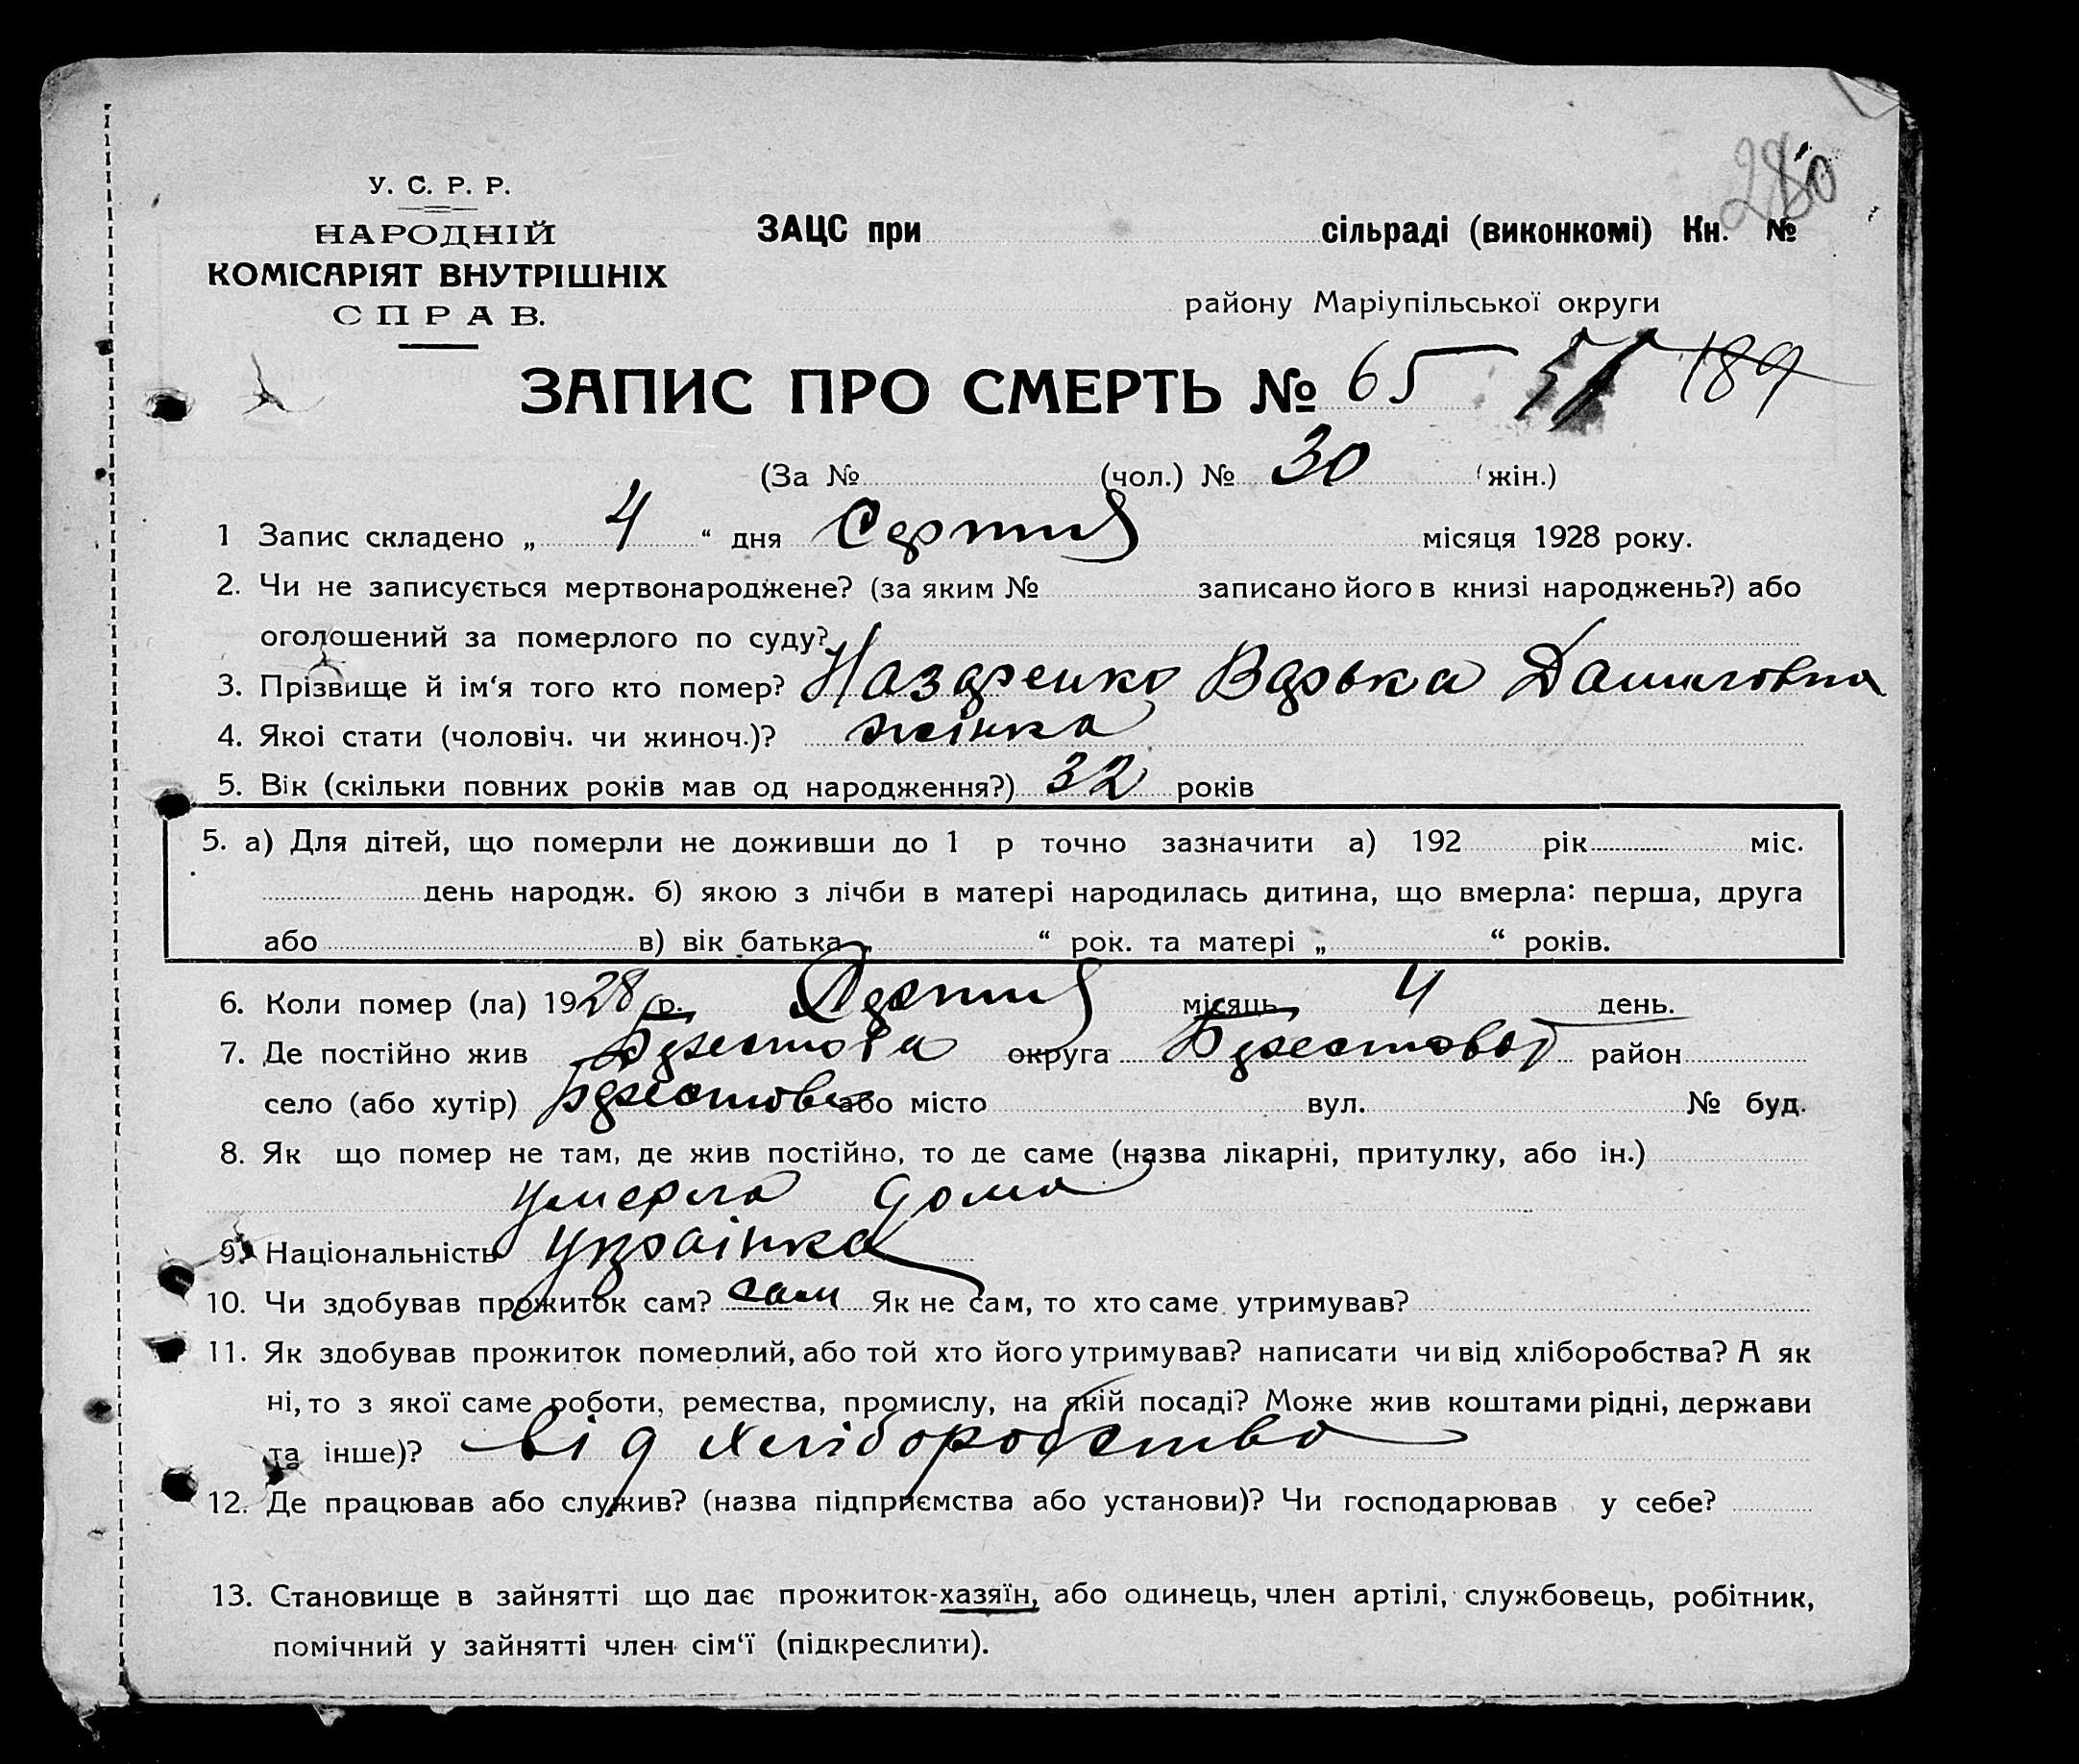 280
У. С. Р. Р.
НАРОДНІЙ
КОМІСАРІЯТ ВНУТРІШНІХ
СПРАВ.
ЗАЦС при сільраді (виконкомі) Кн. №
району Маріупільської округи
ЗАПИС ПРО СМЕРТЬ № 65 189
(За № (чол.) № 30 (жін.)
1 Запис складено „ 4 “ дня місяця 1928 року.
2. Чи не записується мертвонароджене? (за яким № записано його в книзі народжень?) або
оголошений за померлого по суду?
3. Прізвище й ім‘я того кто помер? Назаренко Варька Даниловна
4. Якоі стати (чоловіч. чи жиноч.)? жінка
5. Вік (скільки повних років мав од народження?) 32 років
5. а) Для дітей, що померли не доживши до 1 р точно зазначити а) 192 рік міс.
день народж. б) якою з лічби в матері народилась дитина, що вмерла: перша, друга
або в) вік батька „ “ рок. та матері „ “ років.
6. Коли помер (ла) 1928 р. місяць 4 день.
7. Де постійно жив округа район
село (або хутір) або місто вул. № буд.
8. Як що помер не там, де жив постійно, то де саме (назва лікарні, притулку, або ін.)
умерла дома
9. Національність українка
10. Чи здобував прожиток сам? сам Як не сам, то хто саме утримував?
11. Як здобував прожиток померлий, або той хто його утримував? написати чи від хліборобства? А як
ні, то з якої саме роботи, ремества, промислу, на якій посаді? Може жив коштами рідні, держави
та інше)? від хліборобство
12. Де працював або служив? (назва підприємства або установи)? Чи господарював у себе?
13. Становище в зайнятті що дає прожиток-хазяїн, або одинець, член артілі, службовець, робітник,
помічний у зайнятті член сім‘ї (підкреслити).